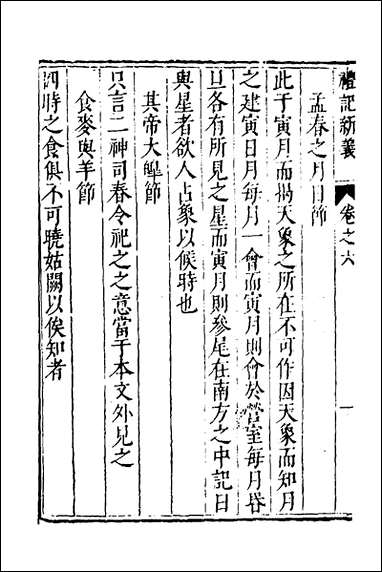 禮記新義 卷之六 一
孟春之月日節
此于寅月而揭天象之所在不可作因天象而知月
之建寅日月每月一會而寅月則會於營室每月昏
旦各有所見之星而寅月則參尾在南方之中記日
與星者欲人占象以候時也
其帝大皥節
只言二神司春令祀之之意當于本文外見之
食麥與羊節
四時之食俱不可曉姑闕以俟知者